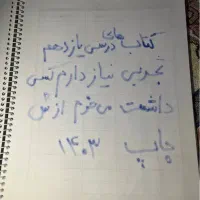 کتاب های درسی یازدهم
تجربی نیاز دارم کسی
داشت می خرم ازش
چاپ ۱۴۰۳